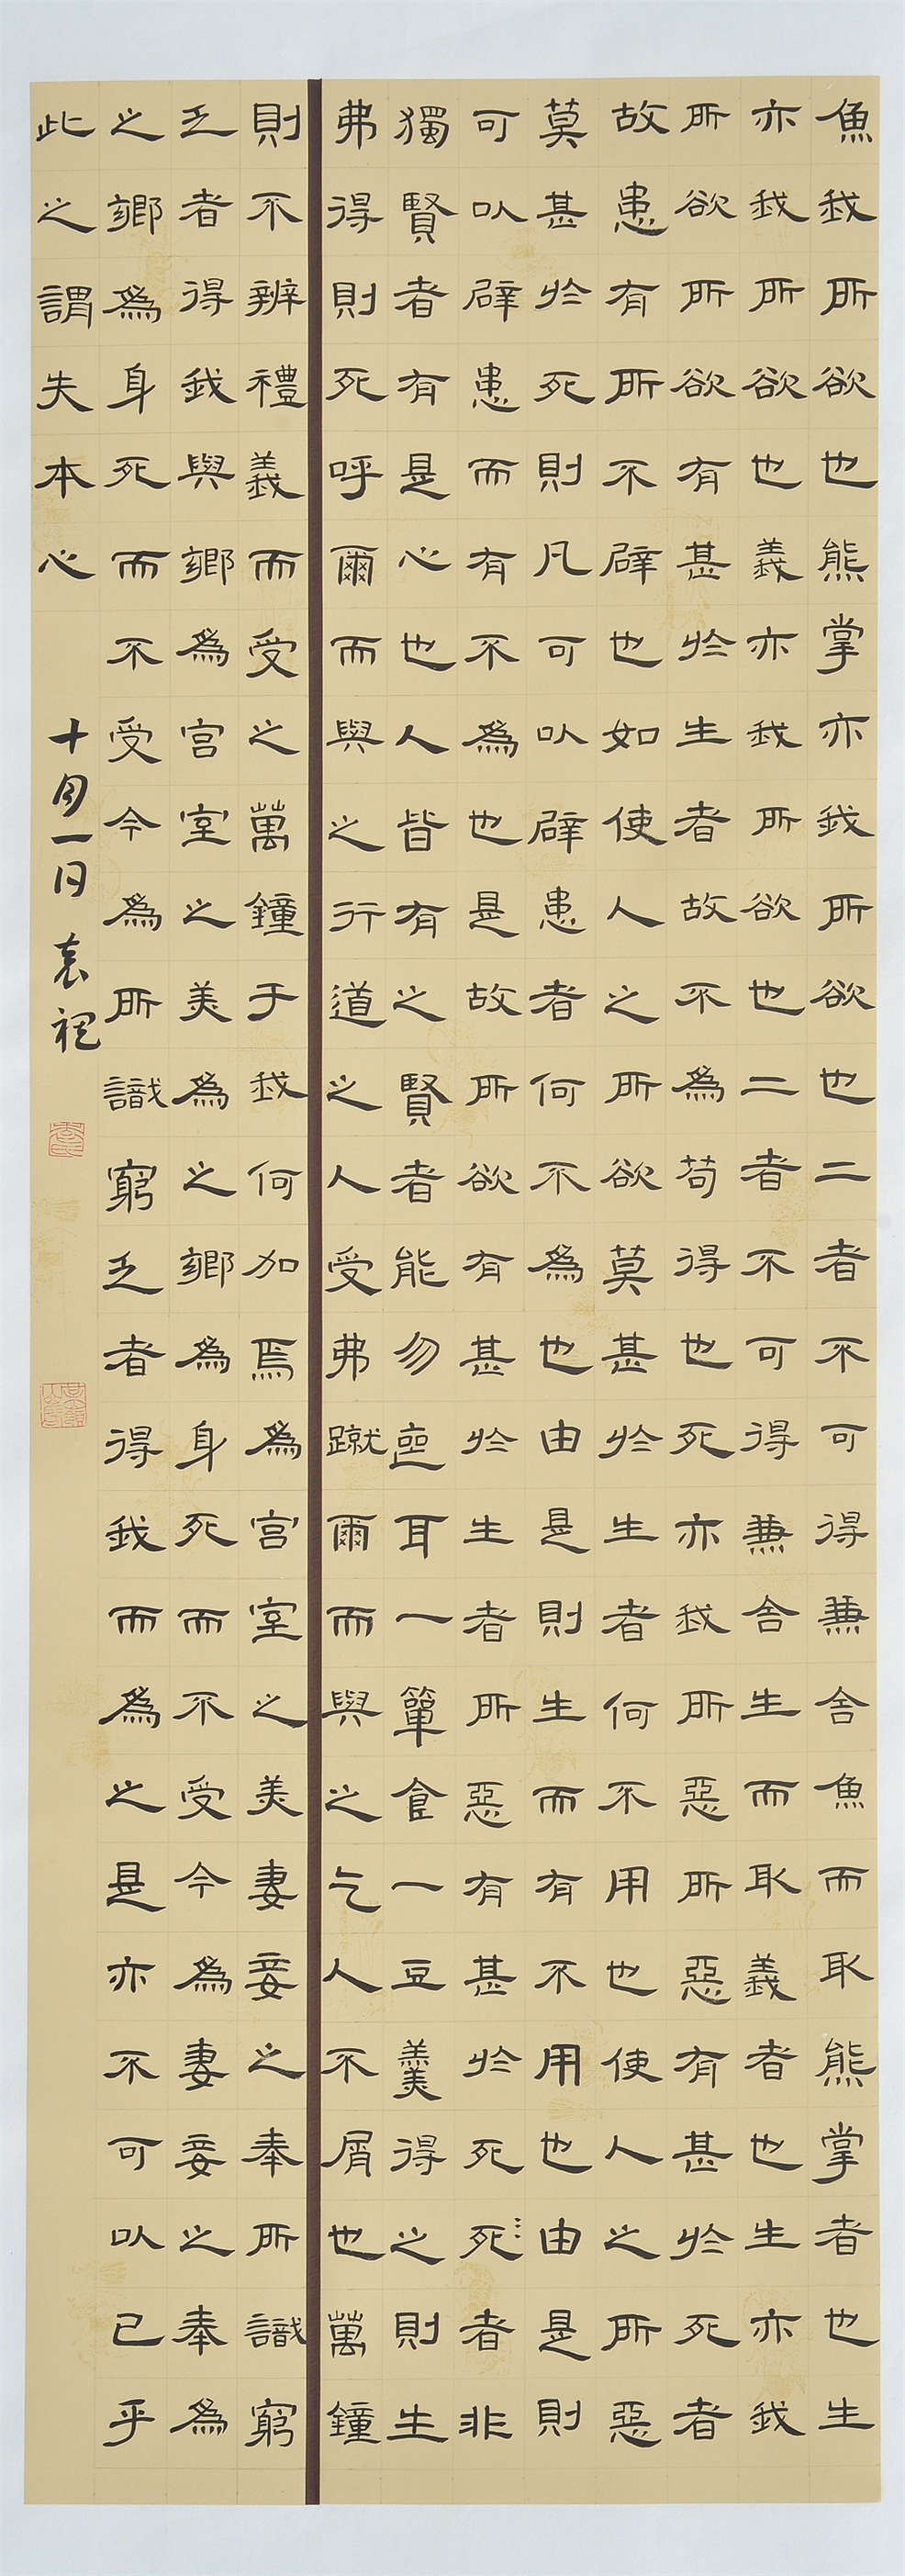 魚我所欲也熊掌亦我所欲也二者不可得兼舍魚而取熊掌者也生
亦我所欲也義亦我所欲也二者不可得兼舍生而取義者也生亦我
所欲所欲有甚於生者故不為苟得也死亦我所惡所惡有甚於死者
故患有所不辟也如使人之所欲莫甚於生者何不用也使人之所惡
莫甚於死則凡可以辟患者何不為也由是則生而有不用也由是則
可以辟患而有不為也是故所欲有甚於生者所惡有甚於死死者非
獨賢者有是心也人皆有之賢者能勿喪耳一簞食一豆羹得之則生
弗得則死呼爾而與之行道之人受弗蹴爾而與之乞人不屑也萬鐘
則不辨禮義而受之萬鐘于我何加焉為宮室之美妻妾之奉所識窮
乏者得我與鄉為宮室之美為之鄉為身死而不受今為妻妾之奉為
之鄉為身死而不受今為所識窮乏者得我而為之是亦不可以已乎
此之謂失本心
十月一日 袁